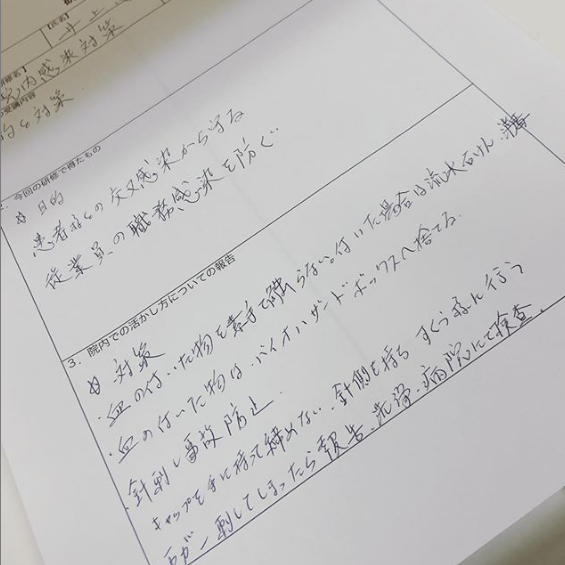 【氏名】
井上
院内感染対策
受講内容
目的&対策
2. 今回の研修で得たもの
目的
患者様の交叉感染から守る
従業員の職務感染を防ぐ
3. 院内での活かし方についての報告
対策
・血の付いた物を素手で触らない。付いた場合は流水石けん、消毒
・血の付いた物は、バイオハザードボックスへ捨てる。
・針刺し事故防止
キャップを手に持って締めない、針側を持ちすくう様に行う
万が一刺してしまったら報告、洗浄、病院にて検査。